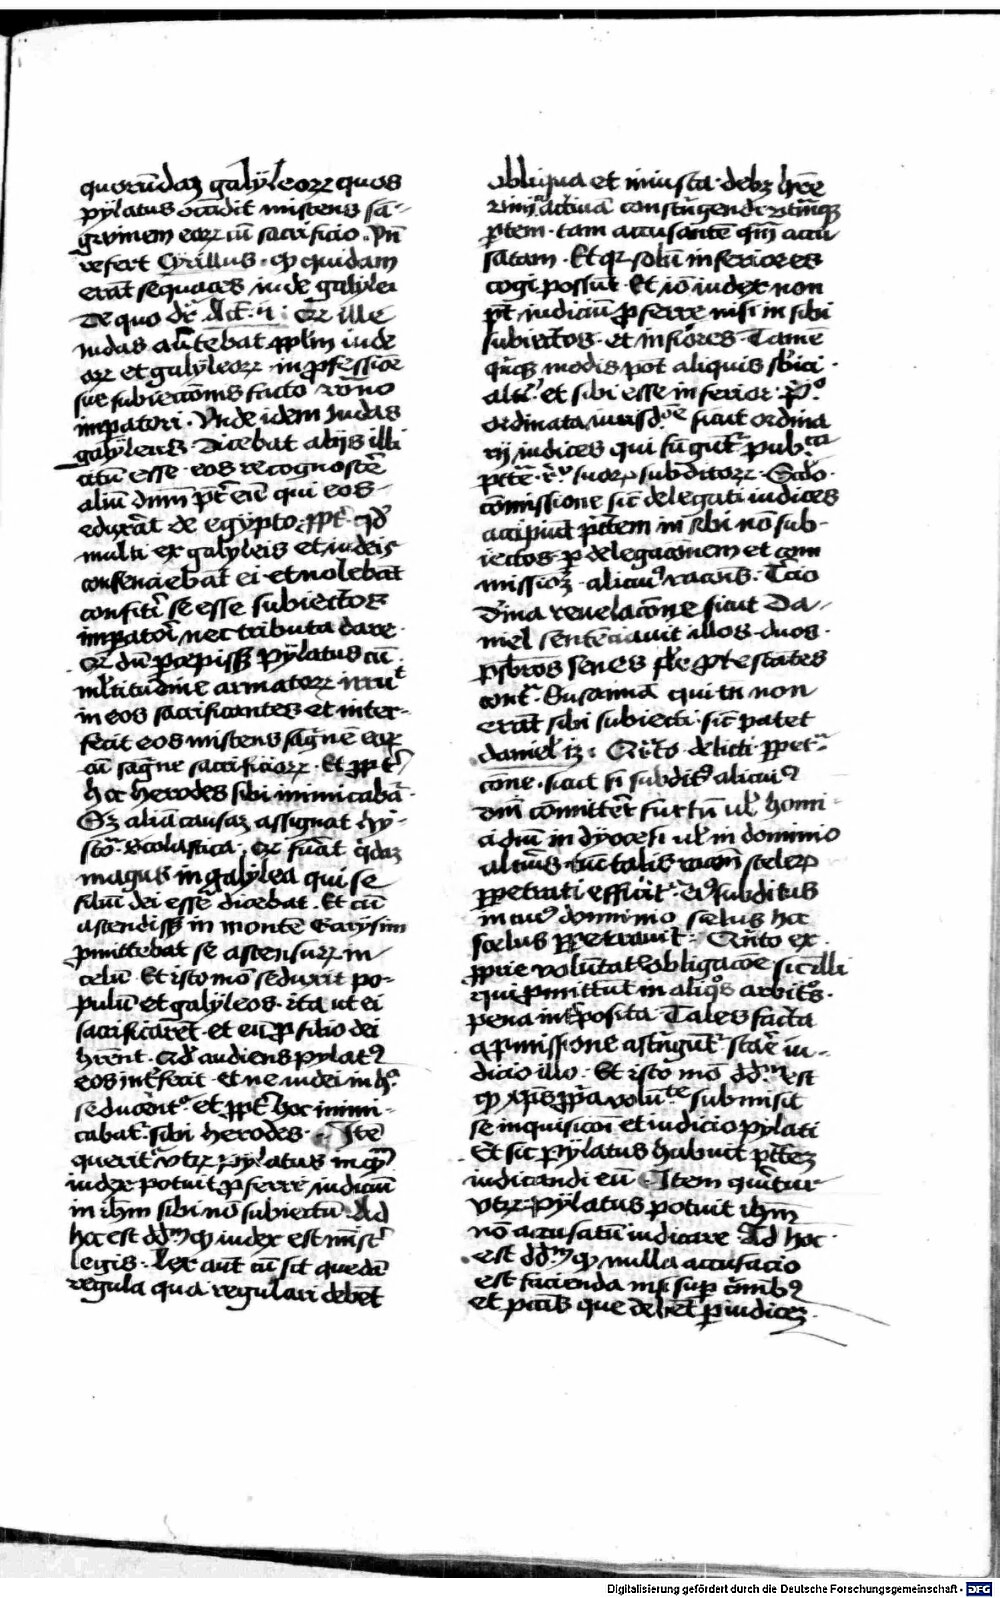 quorūdaꝫ galÿleoꝝ quos
pÿlatus occidit miscens sā-
gwinem eoꝝ cū sacrificio. Vn̄
refert Cÿrillus. ꝙ quidam
erāt sequaces iude galÿlei
De quo dr̄. Act. v. Qꝛ ille
iudas autebat pplm̄ iude
oꝝ et galÿleoꝝ in ꝓfessiōe
sue subiectionis facto rōno
imꝑatori. Vnde idem Iudas
galÿleus. Dicebat aliis illi
citū esse. eos recognoscē
aliū dnm̄ pt̄ eū qui eos
eduxāt de egÿpto. ꝓpt̄ qd̄
multi ex galÿleis et iudeis
consenciebāt ei et nolebāt
confitēi se esse subiectos
imꝑatori, nec tributa dare.
Qꝛ dū ꝑcepisꝫ Pÿlatus cū
ml̄titudine armatoꝝ irruit
in eos sacrificantes et inter-
fecit eos miscens sāgnē eoꝝ
cū sāgne sacrificioꝝ. Et ꝓpt̄
hoc herodes sibi inimicabāt
Sꝫ aliā causaꝫ assignat hÿ-
sto. scolastica. Qꝛ fuāt qidaꝫ
magus in galÿlea qui se
filiū dei esse dicebat. Et cū
ascendisꝫ in montē Garysim
ꝓmittebat se ascensurꝫ in
celū. Et isto mō seduxit po-
pulū et galÿleos. ita ut ei
sacrificarēt et eū ꝓ filio dei
hrēnt. Qd̄ audiens pylatꝰ
eos int̄fecit. et ne iudei in h°
seducētr. et ꝓpt̄ hoc inimi-
cabat̄ sibi herodes. Itē
querit̄ vtꝝ Pÿlatus inqm̄
iudex potuit ꝓferre iudiciū
in ihm̄ sibi nō subiectū. Ad
hoc est dd̄m ꝙ iudex est mīst̄
legis. Lex aut̄ cū sit quedā
regula qua regulari debēt
obliqua et iniusta. debꝫ hr̄e
vim actiuā constr̄gendi vtrūqꝫ
ꝑtem. tam accusantē qm̄ accu
satam. Et qꝛ solū inferiores
cogi possūt. Et iō iudex non
pt̄ iudiciū ꝓferre nisi in sibi
subiectos. et inf̄iores. Tamē
qn̄qꝫ modis pōt aliquis sb̄ici
alt̄i et sibi esse inferior. P°
ordinata iurisd°e sicut ordina
rij iudices qui fūgūt̄ pub
ptāte. suoꝝ subditoꝝ. Scdo
cōmissione sic̄ delegati iudices
accipiūt ptāem in sibi nō sub-
iectos. ꝑ delegacionem et com
missioꝫ. alicuiꝰ racōnis. Tc̄io
Diuina reuelacōne sicut Da-
niel sentēciauit illos duos.
pr̄sbros senes falsū ꝓtestātes
contr̄. Susannā qui tn̄ non
erāt sibi subiecti. sic̄ patet
daniel. iꝫ. Qr̄to delicti ꝑpet̄a
cōne. sicut si subditꝰ alicuiꝰ
dnī cōmitteret furtū ul̄ homi-
cidiū in dÿocesi ul̄ in dominio
altiꝰs. tūc talis racōne scelerꝭ
ꝑpetrati efficit̄. eiꝰ subditus
in cuiꝰ dominio scelus hoc
scelus ꝑpetrauit. Qnto ex
ꝓprie volūtatis obligacōe sic̄ illi
qui ꝓmittūt in aliqos arbitros.
pena int̄posita. Tales facta
ꝓmissione astr̄gūt̄ stare iu-
dicio illo. Et isto mō dd̄m est
ꝙ xps ꝓpria volūte submisit
se inquisicioni et iudicio pylati
Et sic Pÿlatus habuit ptāteꝫ
iudicandi eū. Item quer̄tur
vtꝝ Pÿlatus potuit ihm̄
nō accusatū iudicare. Ad hoc
est dd̄m ꝙ nulla accusacio
est facienda nisi suꝑ crīmībꝰ
et pcctīs que debēt ꝑ iudiceꝫ.
Digitalisierung gefördert durch die Deutsche Forschungsgemeinschaft - DFG